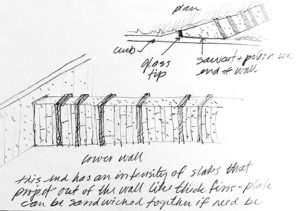 plan
curb
glass
top
sawcut + polish
end of wall
lower wall
this end has an intensity of slabs that
prop out of the wall like thick fins - plate
can be sandwiched together if need be